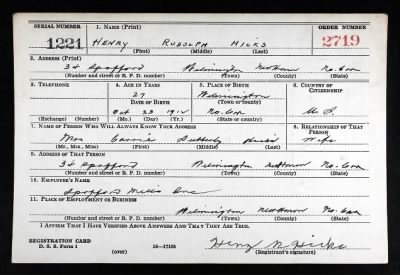 SERIAL NUMBER 1. NAME (Print) ORDER NUMBER
1221 HENRY RUDOLPH HICKS 2719
(First) (Middle) (Last)
2. ADDRESS (Print)
34 Spofford Wilmington New Hanover No. Car
(Number and street or R. F. D. number) (Town) (County) (State)
3. TELEPHONE 4. AGE IN YEARS 5. PLACE OF BIRTH 6. COUNTRY OF CITIZENSHIP
27 Wilmington
DATE OF BIRTH (Town or county)
Oct 23 1912 No. Car U. S.
(Exchange) (Number) (Mo.) (Day) (Yr.) (State or country)
7. NAME OF PERSON WHO WILL ALWAYS KNOW YOUR ADDRESS 8. RELATIONSHIP OF THAT PERSON
Mrs Hicks Wife
(Mr., Mrs., Miss) (First) (Middle) (Last)
9. ADDRESS OF THAT PERSON
34 Spofford Wilmington New Hanover No. Car
(Number and street or R. F. D. number) (Town) (County) (State)
10. EMPLOYER'S NAME
Spofford Mills Inc
11. PLACE OF EMPLOYMENT OR BUSINESS
Wilmington New Hanover No. Car
(Number and street or R. F. D. number) (Town) (County) (State)
I AFFIRM THAT I HAVE VERIFIED ABOVE ANSWERS AND THAT THEY ARE TRUE.
REGISTRATION CARD
D. S. S. Form 1 16-17105 Henry R Hicks
(over) (Registrant's signature)